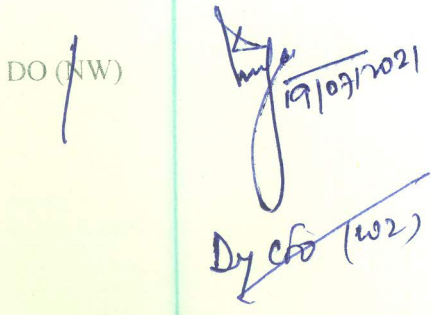 DO (NW)
19/07/2021
Dy CFO (WZ)